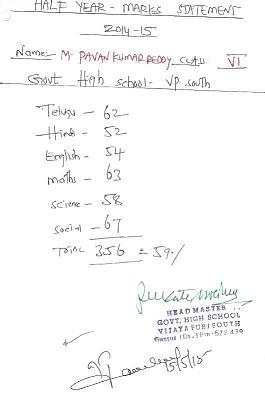 HALF YEAR - MARKS STATEMENT
2014-15
Name:- M. PAVAN KUMAR REDDY CLASS VI
Govt High school - VP. south
Telugu - 62
Hindi - 52
English - 54
maths - 63
science - 58
social - 67
Total 356 = 59%
HEAD MASTER
GOVT. HIGH SCHOOL
VIJAYA PURI SOUTH
Guntur (Dt.) Pin - 522 439
15/5/15